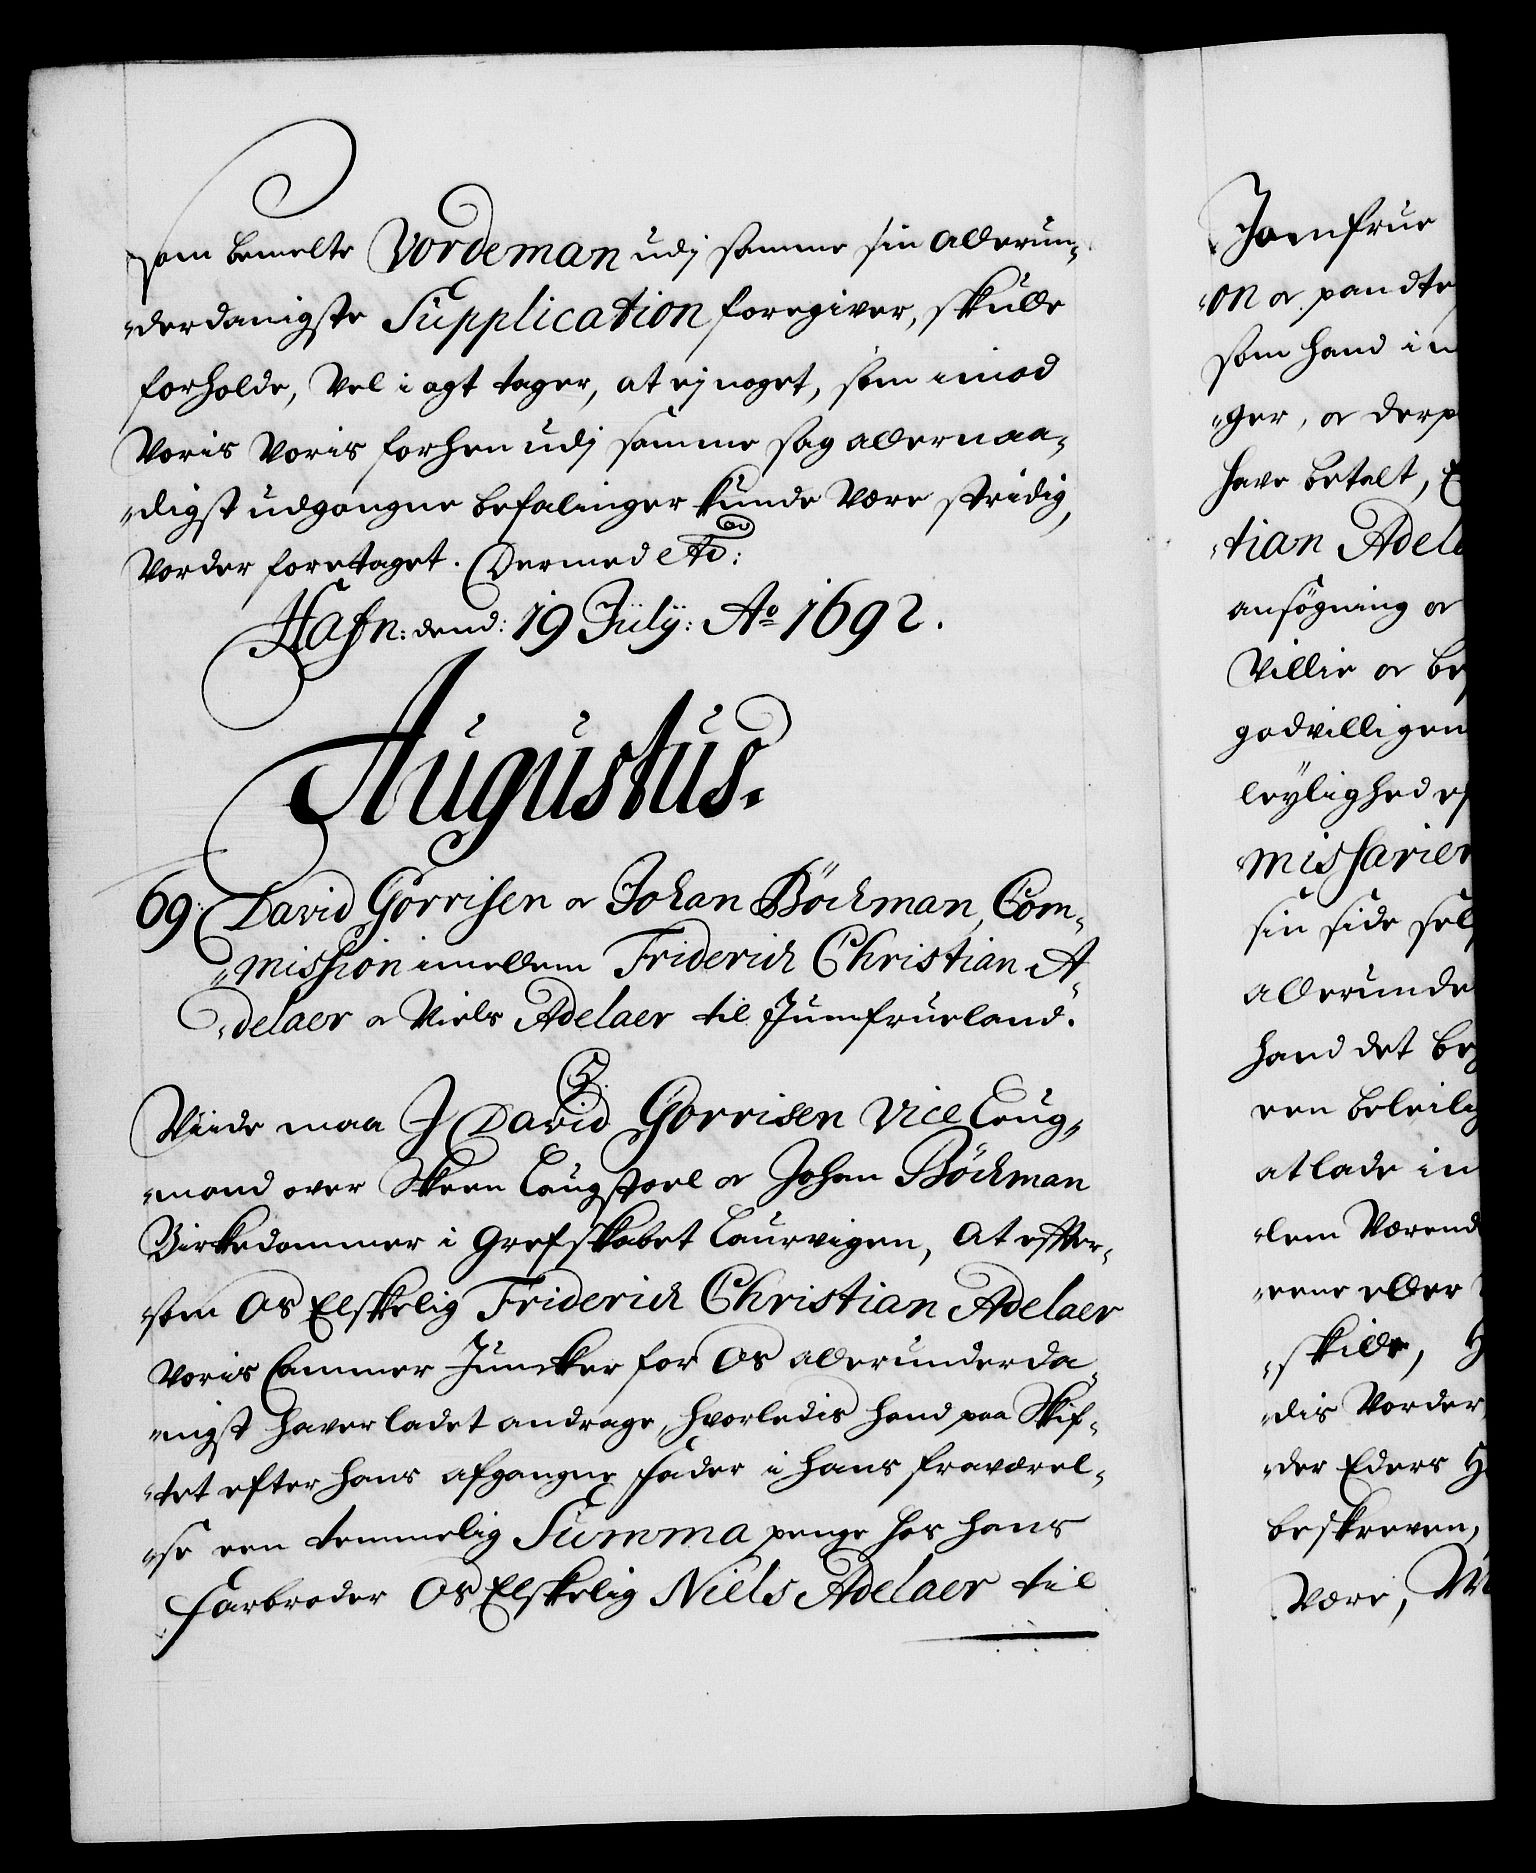 som bemelte Vordeman udj samme sin allerun„
„derdanigste Supplication foregiver, skulle
forholde, vel i agt tager, at ej noget, som imod
Voris Voris forhen udj samme sag allernaa„
„digst udgangne befalinger kunde være stridig,
vorder foretaget. Dermed etc:
Hafn: dend: 19 July: Ao 1692.
Augustus.
69: David Gorrisen or Johan Böckman, Com„
„mission imellem Friderich Christian A„
„delaer or Niels Adelaer til Jumfrueland.
C5.
Viide maa J David Gorrisen Vice Laug„
„mand over Skeen Laugstoel or Johan Böckman
Birkedommer i Grefskabet Laurvigen, At effter„
„som Os Elskelig Friderich Christian Adelaer
Voris Cammer Juncker for Os allerunderda„
„nigst haver ladet andrage, hvorledis hand paa Skif„
„tet efter hans afgangne fader i hans fraværel„
„se een temmelig Summa penge hos hans
Farbroder Os Elskelig Niels Adelaer til
Jomfrue
„on or pandte
som hand in
„ger, or derp
have betalt,
„tian Adel
ansøgning or
Villie or be
godvilligen
leylighed ef
missarier
sin side sel
allerunde
hand det be
een beleilig
at lade in
„lem værend
„eene eller
„skille, H
„dis vorder
„der Eders H
beskreven,
være,